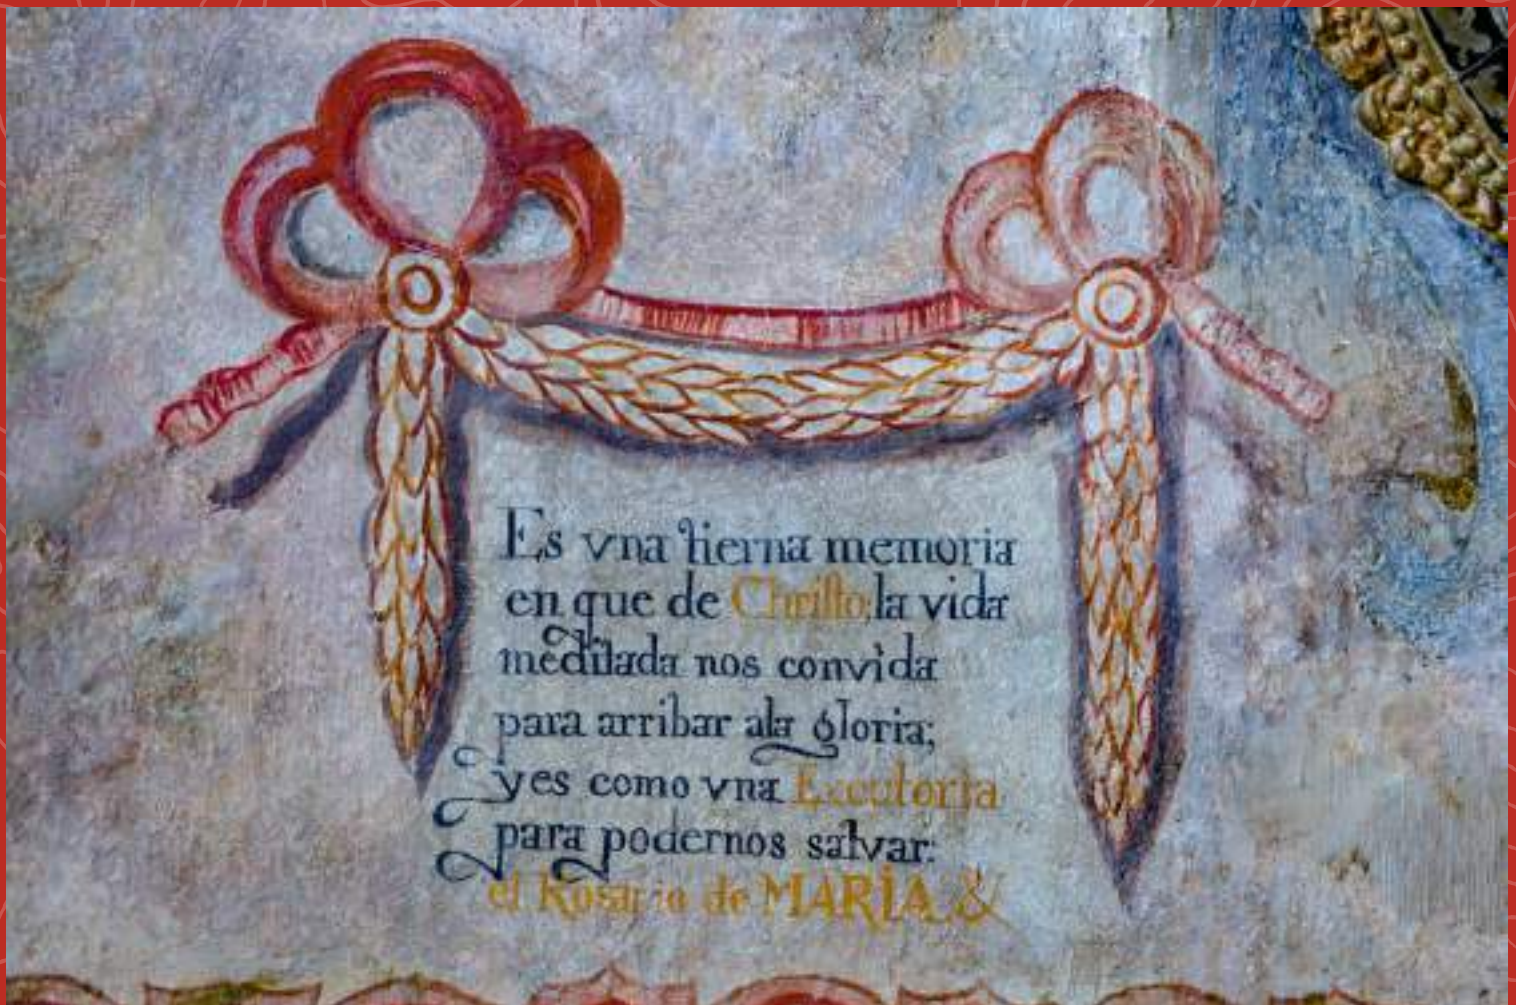 Es vna tierna memoria
en que de Christo, la vida
meditada nos convida
para arribar ala gloria;
yes como vna Executoria
para podernos salvar:
el Rosario de MARÍA &